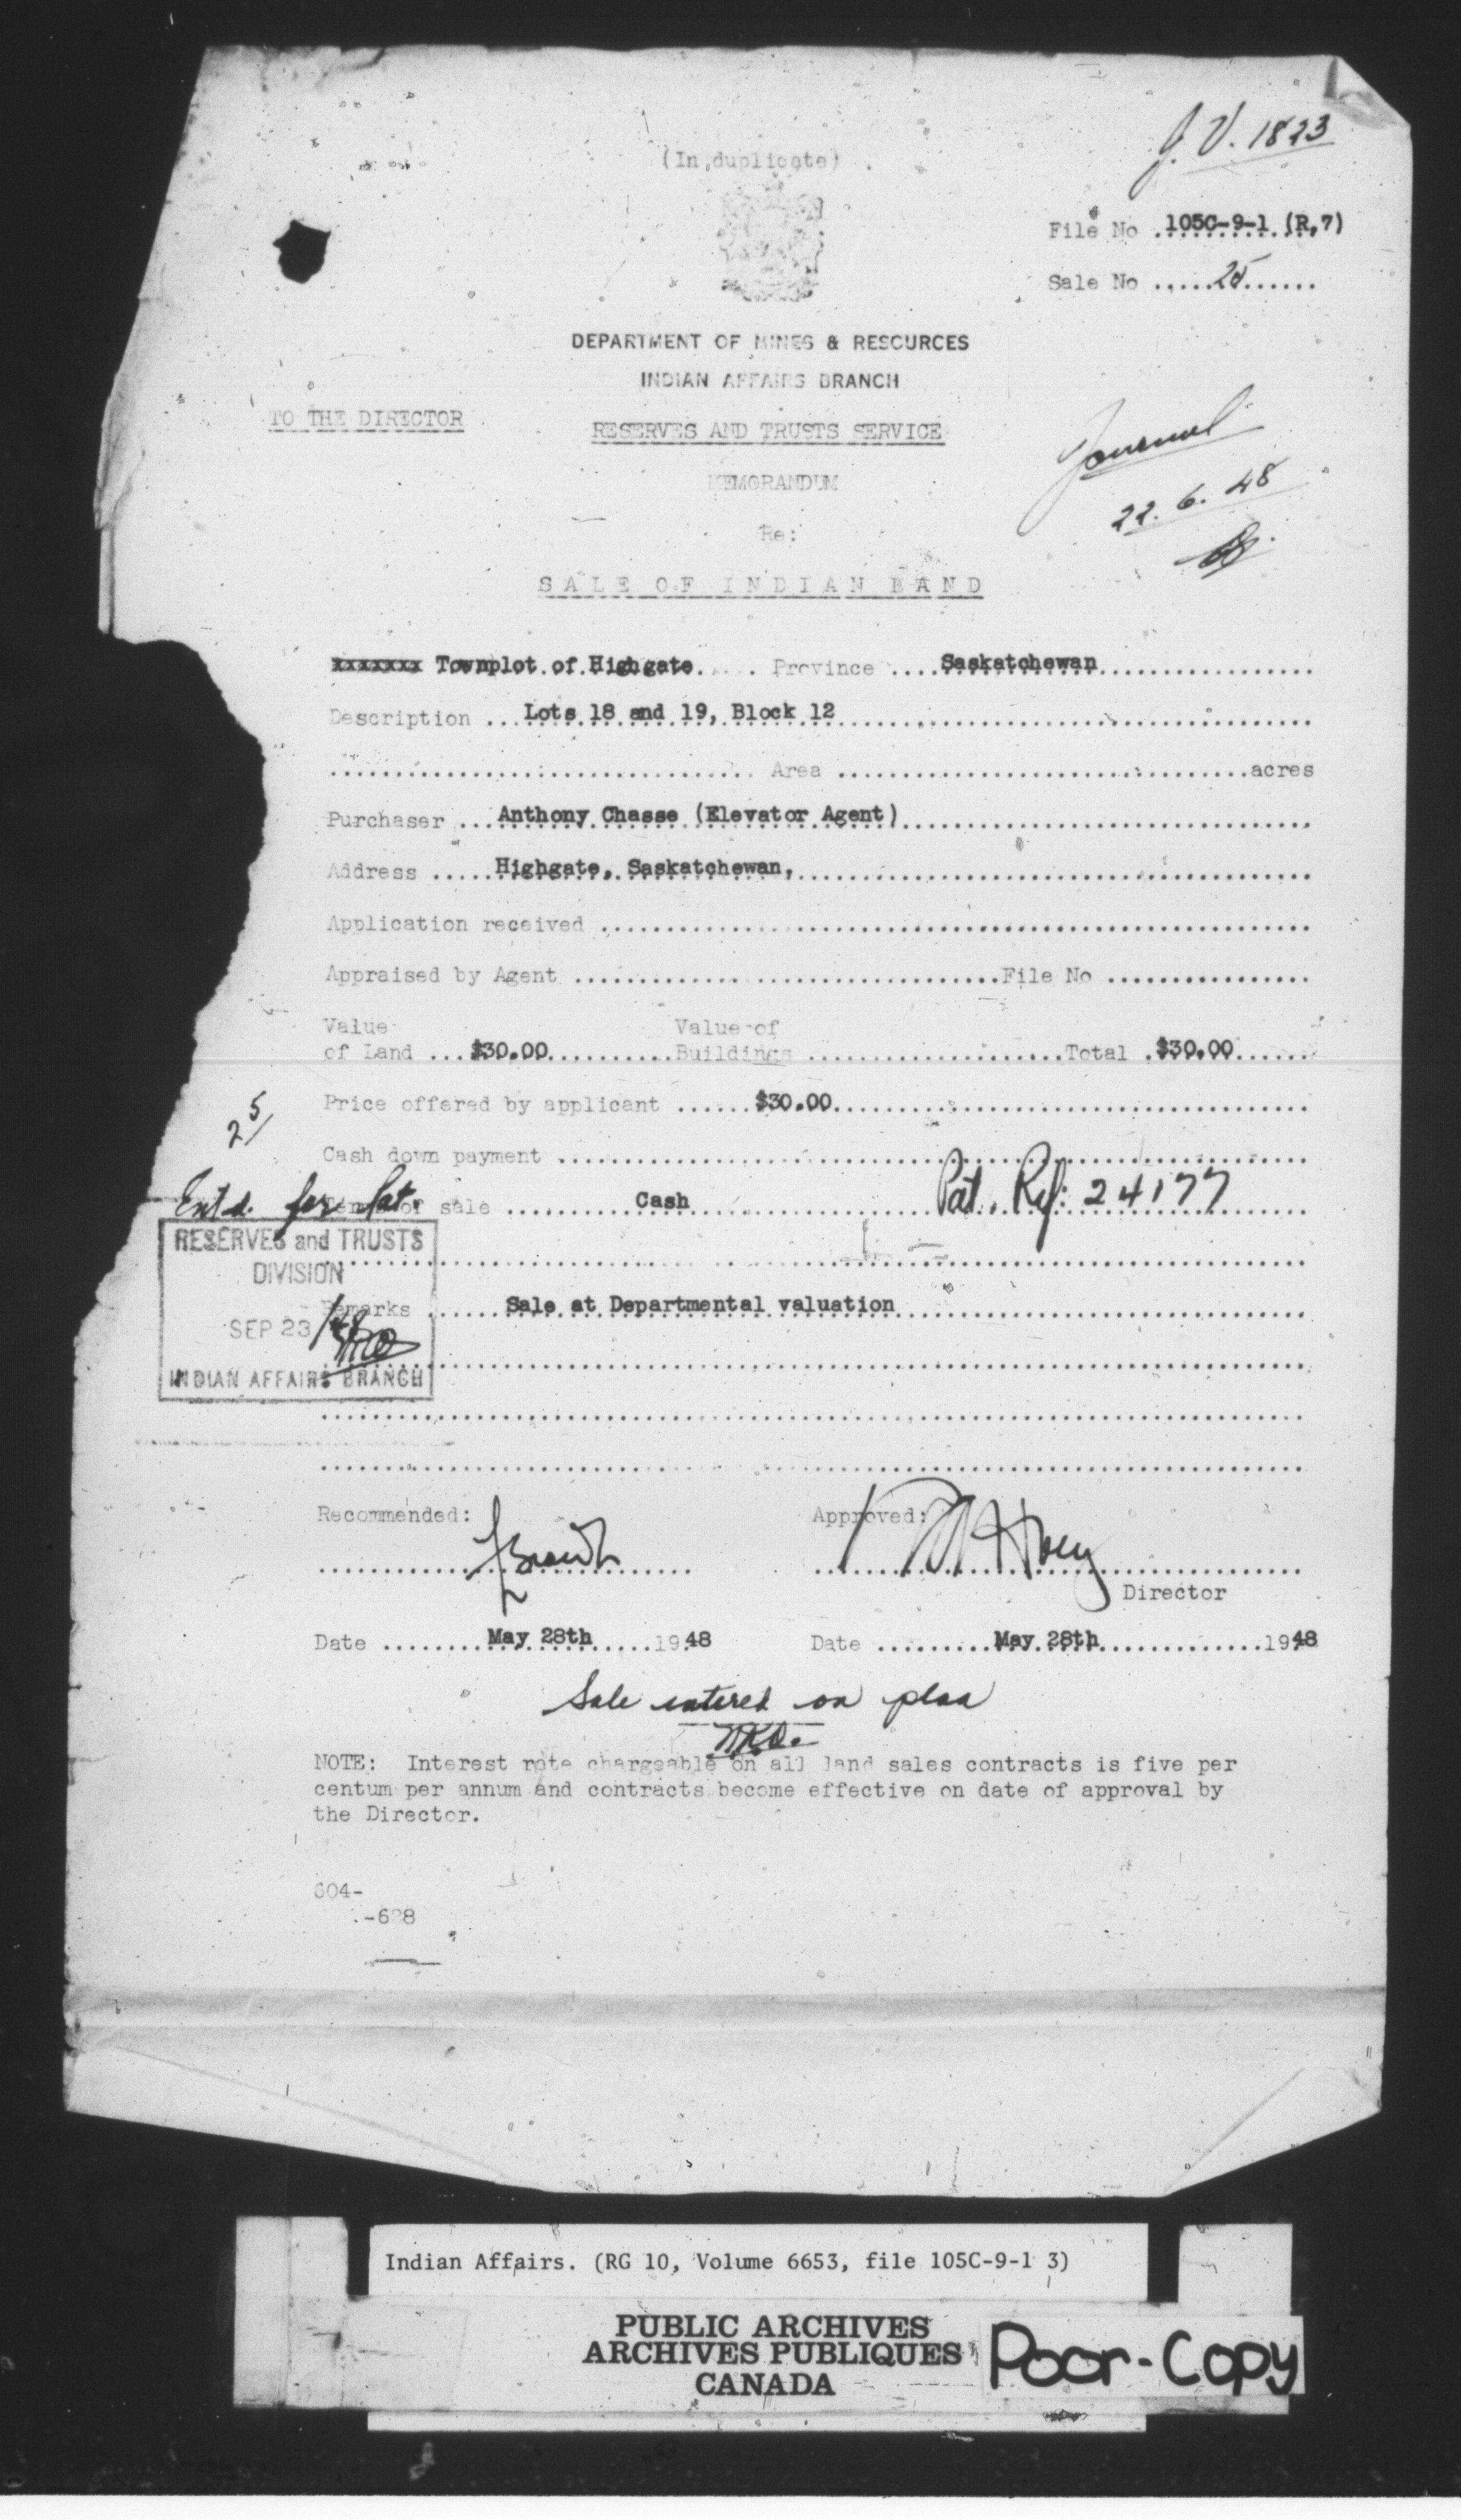 J.V. 1823
(In duplicate)
File No .105C-9-1 (R.7)
Sale No .....25......
DEPARTMENT OF MINES & RESOURCES
INDIAN AFFAIRS BRANCH
TO THE DIRECTOR
RESERVES AND TRUSTS SERVICE
MEMORANDUM
Journal
22. 6. 48
Re:
SALE OF INDIAN LAND
xxxxxxx Townplot of Highgate..... Province ....Saskatchewan
Description ...Lots 18 and 19, Block 12
Area ..... acres
Purchaser ...Anthony Chasse (Elevator Agent)
Address .....Highgate, Saskatchewan,
Application received .....
Appraised by Agent ..... File No .....
Value Value of
of Land ...$30.00..... Buildings ..... Total .$30.00
Price offered by applicant ......$30.00
25/
Cash down payment .....
Entd. for Pat.
Terms of sale ..... Cash ..... Pat. Ref: 24177
RESERVES and TRUSTS
DIVISION
Remarks ......Sale at Departmental valuation
SEP 23/48
INDIAN AFFAIRS BRANCH
Recommended: Approved:
Director
Date ........May 28th.....1948 Date .........May 28th.....1948
Sale entered on plan
NOTE: Interest rate chargeable on all land sales contracts is five per
centum per annum and contracts become effective on date of approval by
the Director.
604-
Indian Affairs. (RG 10, Volume 6653, file 105C-9-1 3)
PUBLIC ARCHIVES
ARCHIVES PUBLIQUES
CANADA
Poor-Copy